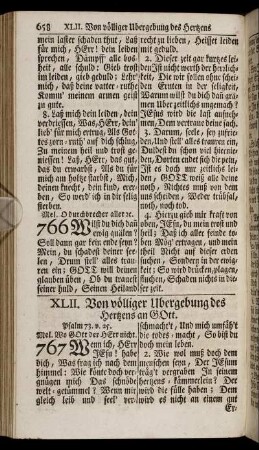 658 XLII. Von völliger Ubergebung des Hertzens
mein laster schaden thut, Laß
für mich, HErr! dein leiden
sprechen, Dämpff all bos-
heit, alle schuld: Gieb trost
im leiden, gieb geduld; Lehr'
mich, daß deine vatter-ruthe
Komm' meinem armen geist
zu gute.
8. Laß mich dein leiden, dein
verdriessen, Was, HErr, dein'
lieb' für mich ertrug, Als Got-
tes zorn-ruth' auf dich schlug,
Zu meinem heil und trost ge-
niessen! Laß, HErr, das gut,
das du erwarbst, Als du für
mich am holtze starbst, Mich
deinen knecht, dein kind, erer-
ben, So werd' ich in dir selig
sterben.
Mel. O durchbrecher aller ec.
766 Wilst du dich dan
ewig quälen?
Soll dann gar kein ende seyn?
Mein, du schadest deiner see-
len, Drum stell' alles trau-
ren ein; GOTT will deinen
glauben üben, Ob du trauest
seiner huld, Seinen Heiland
recht zu lieben, Heisset leiden
mit geduld.
2. Dieser zeit gar kurtzes lei-
den, Ist nicht werth der herr-
lichkeit, Die wir sollen ohne schei-
den Ernten in der seligkeit,
Warum wilst du dich dan grä-
men Uber zeitlichs ungemach?
JEsus wird die last aufneh-
men, Dem vertraue deine sach.
3. Darum, seele, sey zufrie-
den, Und stell' alles trauren ein,
Duldest du schon viel hienie-
den, Dorten endet sich die pein,
Ist es doch nur zeitlich lei-
den, GOTT weiß alle deine
noth, Nichtes muß von dem
uns scheiden, Weder trübsal,
noth, noch tod.
4. Hierzu gieb mir kraft von
oben, JEsu, du mein trost und
theil, Daß ich alle feinde to-
ben Mög' ertragen, und mein
heil Nicht auf dieser erden
suchen, Sondern in der ewig-
keit: So wird drücken, plagen,
fluchen, Schaden nichts in die-
ser zeit.
XLII. Von völliger Ubergebung des
Hertzens an GOtt.
Psalm 73. v. 25.
Mel. Wo GOtt der HErr nicht.
767 Wenn ich, HErr
JEsu! habe
dich, Was frag ich nach dem
himmel: Wie könte doch ver-
gnügen mich Das schnöde
welt-getümmel? Wenn mir
gleich leib und seel' ver-
schmacht't, Und mich umfäh't
die todes-macht, So bist du
doch mein leben.
2. Wie wol muß doch dem
menschen seyn, Der JEsum
träg't vergraben In seinem
hertzens-kämmerlein? Der
wird es nicht an einem gut
Er-